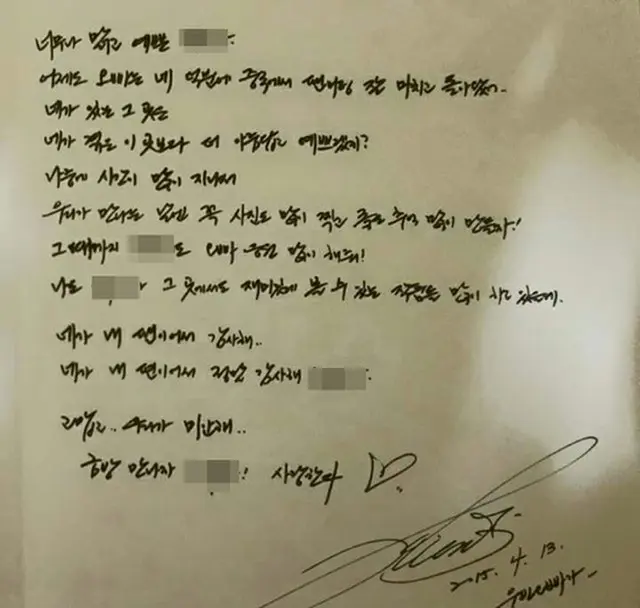 너무나 맑고 예쁜
어제도 오빠는 네 덕분에 중국에서 팬미팅 잘 마치고 돌아왔어..
네가 있는 그 곳은
네가 겪은 이 곳보다 더 아름답고 예쁘겠지?
나중에 시간이 많이 지나서
우리가 만나는 날엔 꼭 사진도 많이 찍고 추억 많이 만들자!
그때까지 도 오빠 응원 많이 해줘!
나도 그 곳에서도 재미있게 볼 수 있는 작품들 많이 하고 있을게.
네가 내 팬이어서 감사해..
네가 내 팬이어서 정말 감사해
고맙고.. 미안해..
금방 만나자 ! 사랑한다
2015. 4. 13.
오빠가-